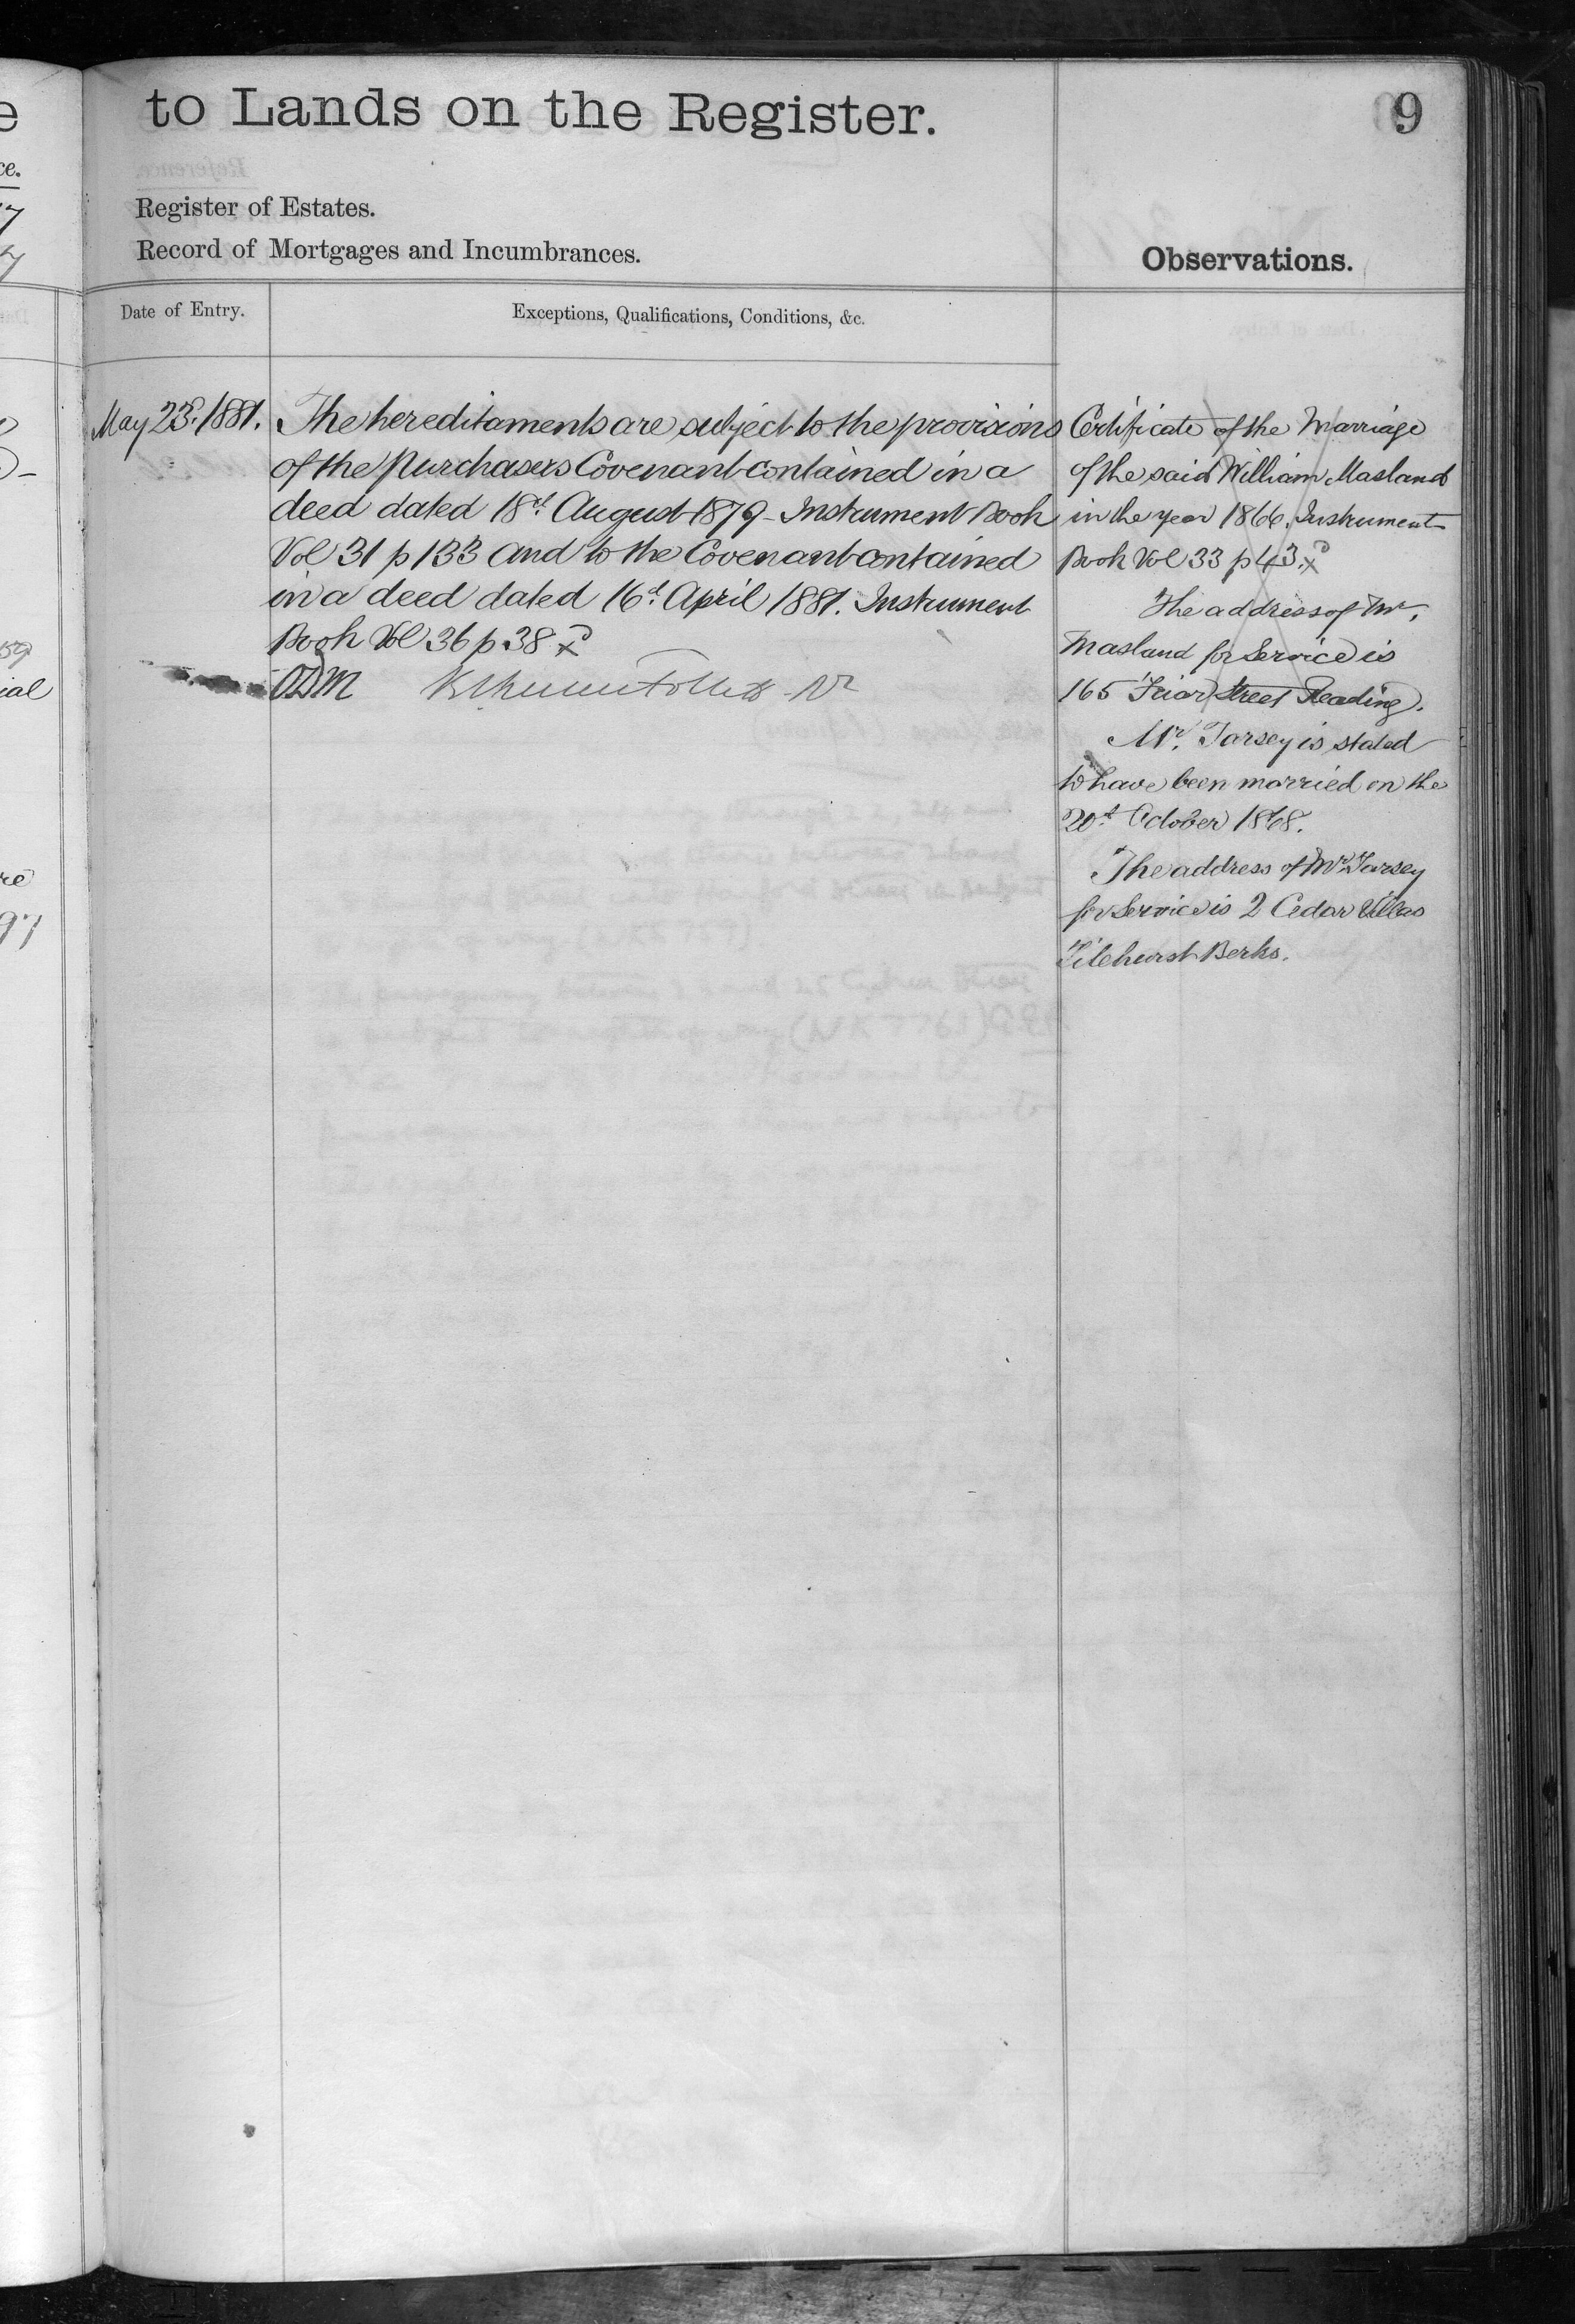 to Lands on the Register.
9
Register of Estates.
Record of Mortgages and Incumbrances.
Observations.
Date of Entry.
Exceptions, Qualifications, Conditions, &c.
May 23d. 1881.
The hereditaments are subject to the provisions
of the Purchasers Covenant contained in a
deed dated 18th August 1879 - Instrument Book
Vol 31 p 133 and to the Covenant contained
in a deed dated 16th April 1881. Instrument
Book Vol 36 p 38
Certificate of the Marriage
of the said William Masland
in the year 1866. Instrument
Book Vol 33 p 43.
The address of Mr.
Masland for Service is
165 Friar Street Reading.
Mr. Tarsey is stated
to have been married on the
20th October 1868.
The address of Mr Tarsey
for Service is 2 Cedar Villas
Tilehurst Berks.
ce.
ial
re
97